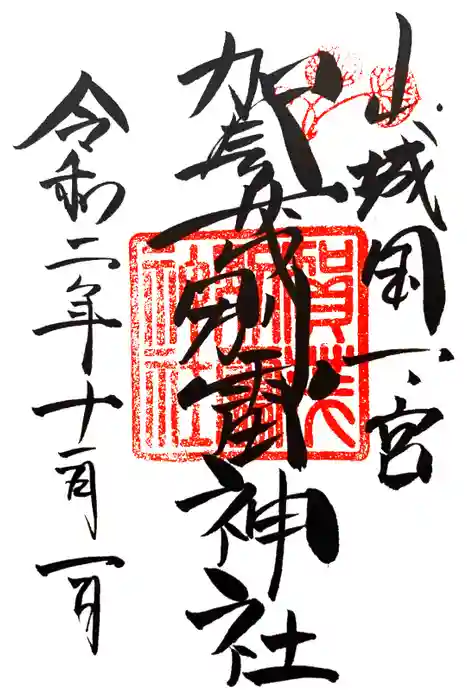 山城国一宮
賀茂別雷神社
令和二年十一月一日
賀茂
別雷
神社